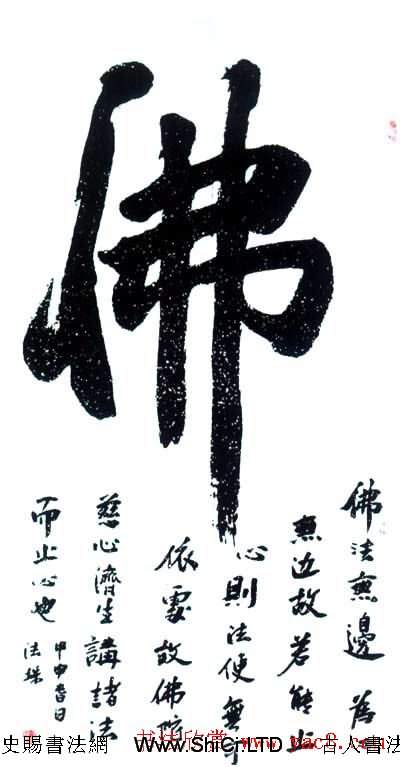 佛
佛法無邊
無边故若能止
心則法使無可
依處故佛陀
慈心濟生講諸法
而止心也
甲申春日
法珠
书法欣赏 www.yac8.com
史賜書法網
名人書法